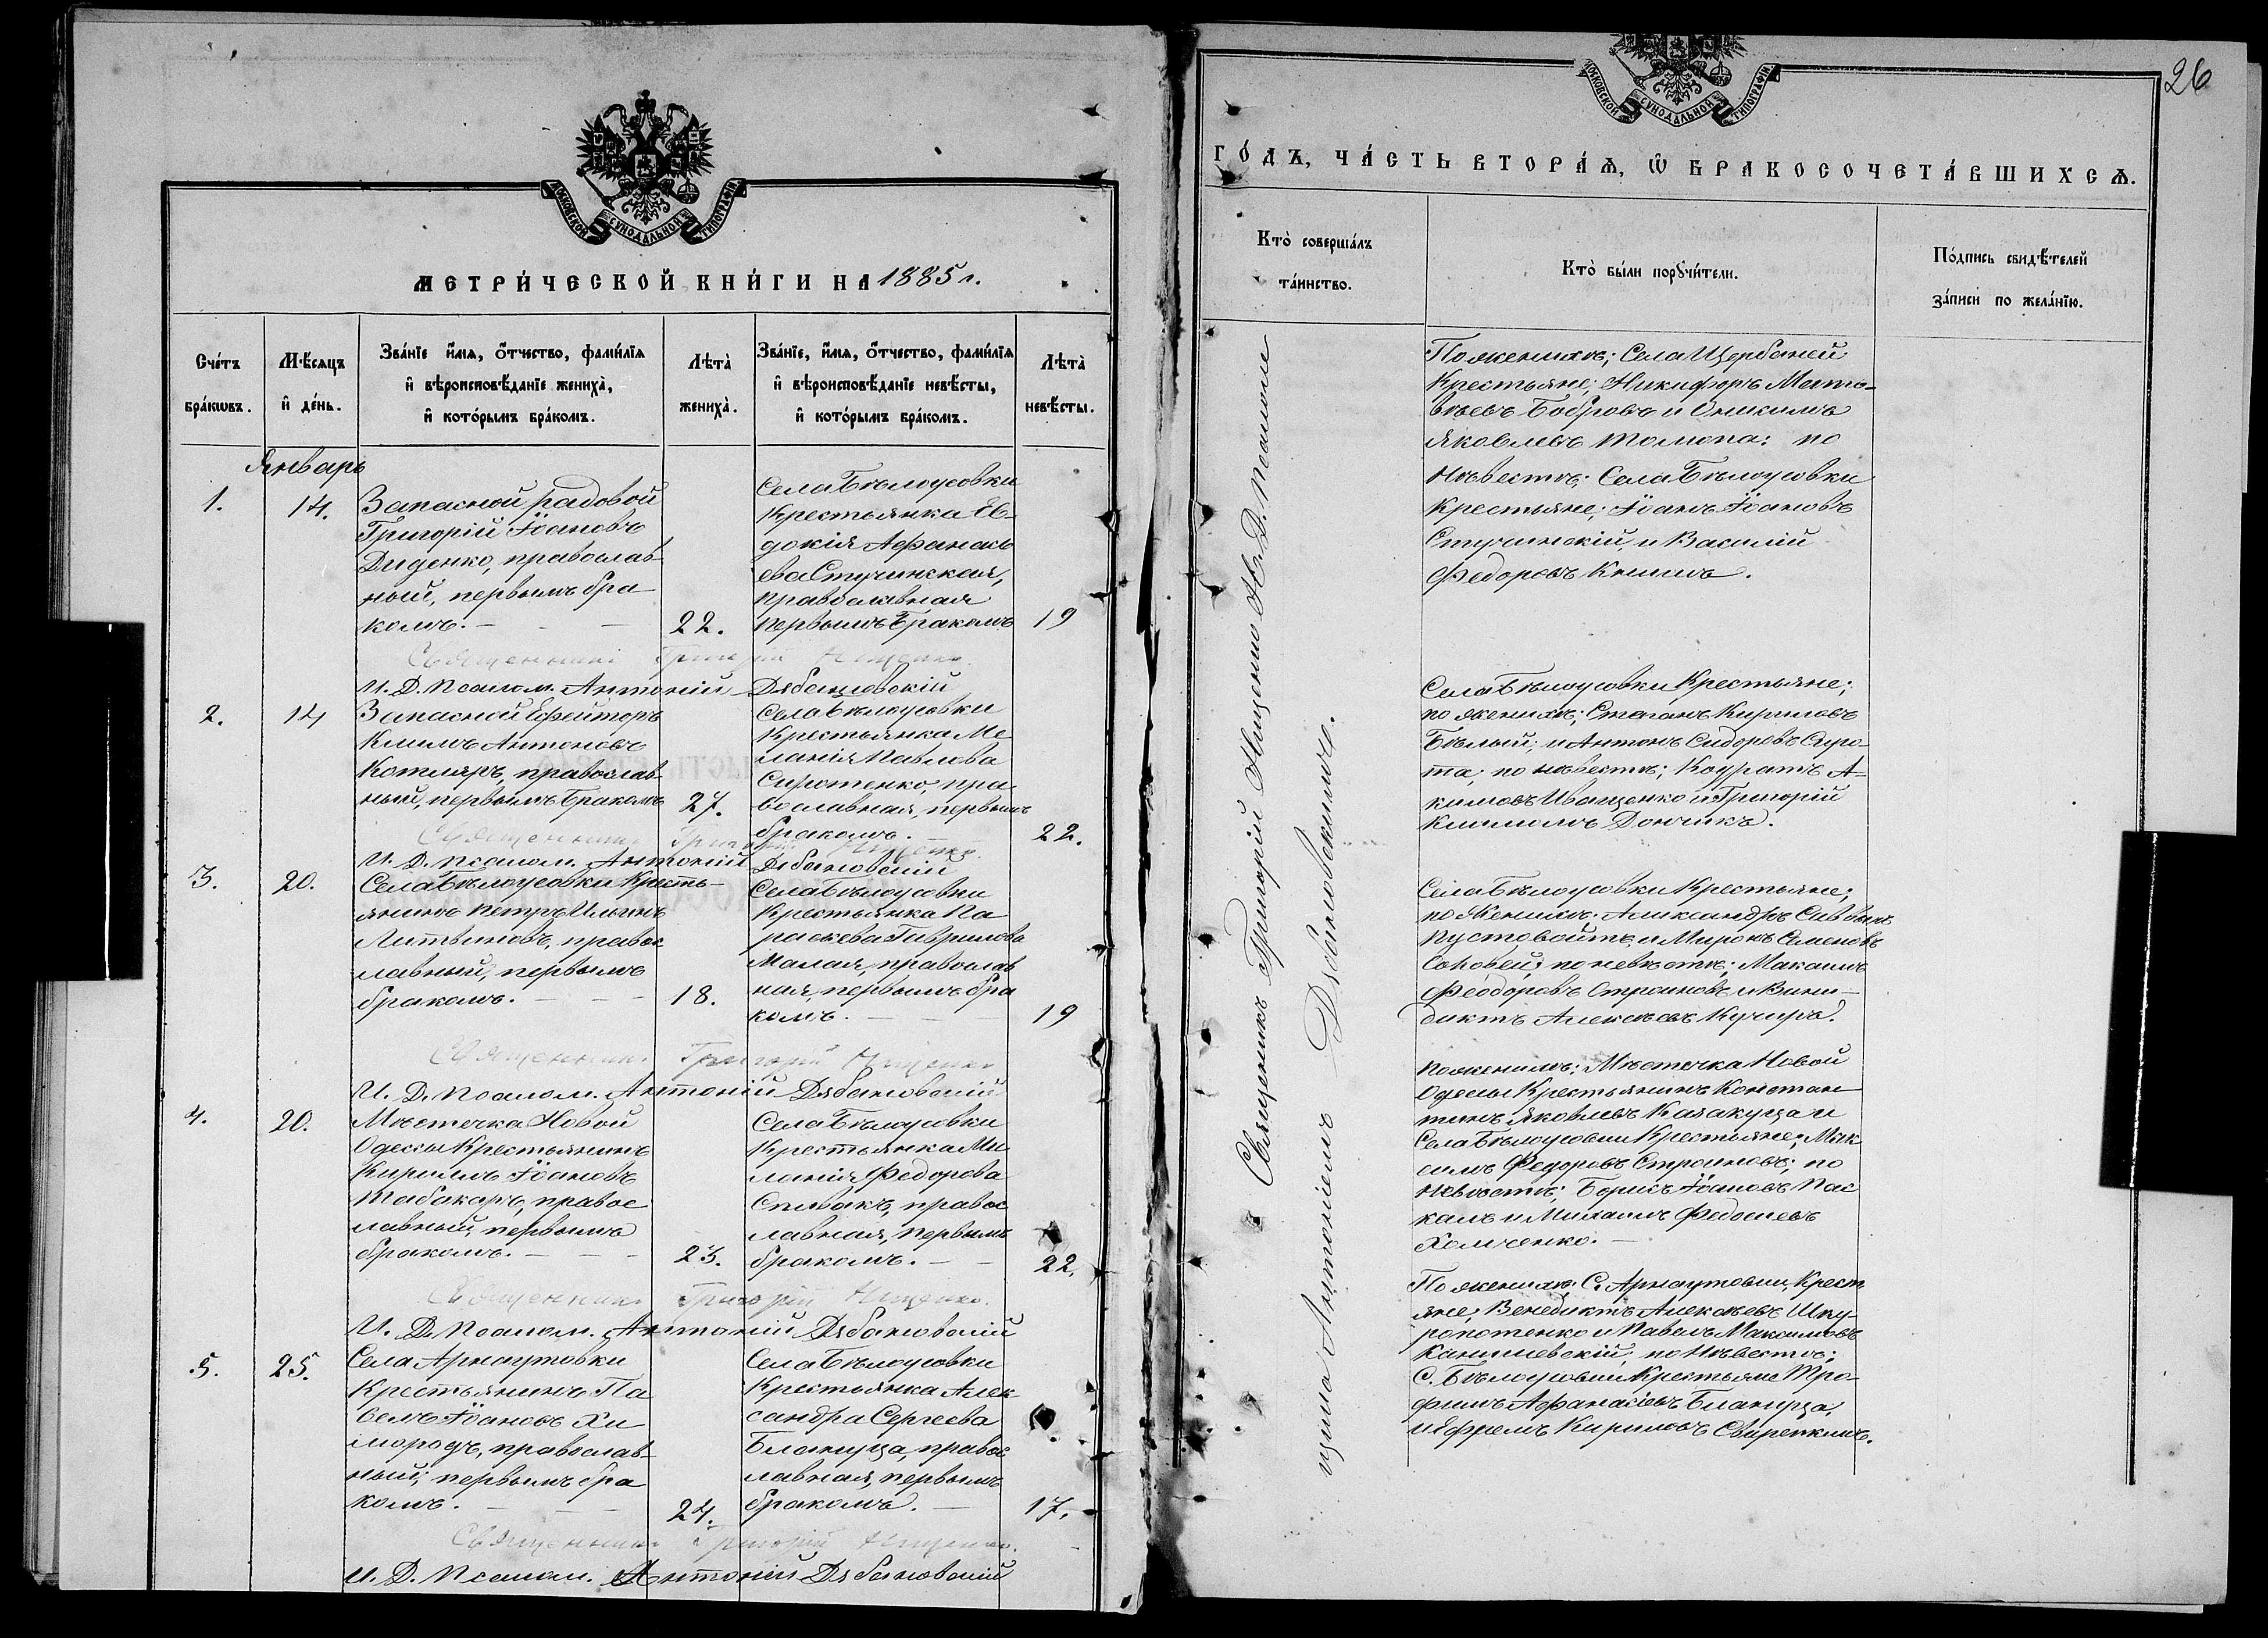 МОСКОВСКОЙ СУНОДАЛЬНОЙ ТИПОГРАФІИ
МЕТРИ́ЧЕСКОЙ КНИ́ГИ НА 1885 г.
Сче́тъ бра́кѡвъ.
Мѣ́сяцъ и де́нь.
Зва́нїе, и҆́мѧ, о҆́тчество, фами́лїѧ и҆ вѣроисповѣ́данїе жениха̀, и҆ кото́рымъ бра́комъ.
Лѣта̀ жениха̀.
Зва́нїе, и҆́мѧ, о҆́тчество, фами́лїѧ и҆ вѣроисповѣ́данїе невѣ́сты, и҆ кото́рымъ бра́комъ.
Лѣта̀ невѣ́сты.
Январь
1.
14.
Запасной рядовой
Григорій Іоановъ
Диденко, православ-
ный, первымъ бра
комъ.
22.
Села Бѣлоусовки
Крестьянка Ев-
докія Афанась
ева Стучинская,
православная
первымъ бракомъ
19
Священникъ Григорій Нищенко.
И. Д. Псалом. Антоній Дзбановскій
2.
14
Запасной Ефейторъ
Климъ Антоновъ
Котляръ, православ-
ный, первымъ бракомъ
27.
Села Бѣлоусовки
Крестьянка Ме
ланія Павлова
Сиротенко, пра
вославная, первымъ
бракомъ.
22.
Священникъ Григорій Нищенко.
И. Д. Псалом. Антоній Дзбановскій
3.
20.
Села Бѣлоусовки Кресть-
янинъ Петръ Ильинъ
Литвиновъ, правос
лавный, первымъ
бракомъ.
18.
Села Бѣлоусовки
Крестьянка Па
раскева Гаврилова
Малая, православ
ная, первымъ бра
комъ.
19
Священникъ Григорій Нищенко
И. Д. Псалом. Антоній Дзбановскій
4.
20.
Мѣстечка Новой
Одессы Крестьянинъ
Кириллъ Іоановъ
Табакаръ, правос
лавный, первымъ
бракомъ.
23.
Села Бѣлоусовки
Крестьянка Ми
ланія Федорова
Спивакъ, правос
лавная, первымъ
бракомъ.
22.
Священникъ Григорій Нищенко.
И. Д. Псалом. Антоній Дзбановскій
5.
25.
Села Арнаутовки
Крестьянинъ Па
велъ Іоановъ Хи
мородъ, православ-
ный, первымъ бра
комъ.
24.
Села Бѣлоусовки
Крестьянка Алек-
сандра Сергеева
Блакица, правос
лавная, первымъ
бракомъ.
17.
Священникъ Григорій Нищенко.
И. Д. Псалом. Антоній Дзбановскій
26
МОСКОВСКОЙ СУНОДАЛЬНОЙ ТИПОГРАФІИ
ГО́ДЪ, ЧА́СТЬ ВТОРА́Ѧ, Ѡ҆ БРАКОСОЧЕТА́ВШИХСѦ.
Кто̀ соверша́лъ та́инство.
Кто̀ бы́ли порꙋчи́тели.
По́дпись свидѣ́телей за́писи по жела́нїю.
Священникъ Григорій Нищенко И. Д. Псалом
щика Антоніемъ Дзбановскимъ.
По женихѣ; Села Щербаней
Крестьяне; Никифоръ Матѳ-
вѣевъ Бобровъ и Онисимъ
Яковлевъ Томопа: по
Нѣвестѣ; Села Бѣлоусовки
Крестьяне; Іоанъ Іоановъ
Стучинскій, и Василій
Федоровъ Книшъ.
Села Бѣлоусовки Крестьяне;
по женихѣ; Стеѳанъ Кириловъ
Бѣлый; и Антонъ Сидоровъ Сиро-
та; по нѣвестѣ; Кодратъ А-
кимовъ Иващенко и Григорій
Климовъ Дончикъ.
Села Бѣлоусовки Крестьяне;
по Женихѣ; Александръ
Пустовойтъ, и Миронъ Семеновъ
Соловей; по невѣстѣ; Максимъ
Феодоровъ Строиновъ и Вини-
диктъ Алексѣевъ Кучиръ.
По женихѣ: Мѣстечка Новой
Одессы Крестьянинъ Констан
тинъ Яковлевъ Каракуца и
Села Бѣлоусовки Крестьяне; Мак
симъ Федоровъ Строиновъ; по
Невѣстѣ; Борисъ Іоановъ Пас
калъ и Михаилъ Федосиевъ
Хомченко.
По женихѣ; С. Арнаутовки, Крест
яне; Венедиктъ Алексѣевъ Шку-
ропотенко и Павелъ Максимовъ
Канишевскій; по Нѣвестѣ;
С. Бѣлоусовки Крестьяне Тро-
фимъ Афанасіевъ Блакица,
и Ефремъ Кириловъ Свирепкинъ.